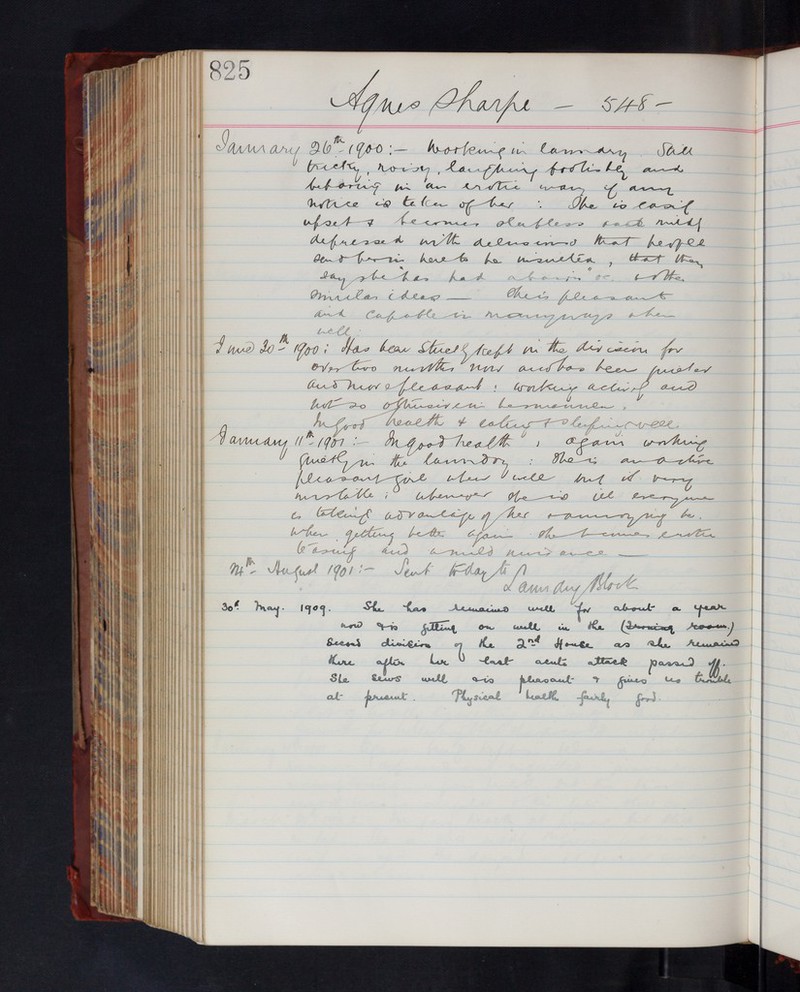 825
Agnes Sharpe — 548 —
January 26th 1900:— Working in laundry Still
tricky, noisy, laughing foolishly and
behaving in an erotic way if any
notice is taken of her : She is easily
upset & becomes and mildly
depressed with delusions that people
send her in here to be insulted, that they
say she "has had a " & other
similar ideas — She is pleasant
and capable in many ways when
well.
June 20th 1900: Has been strictly kept in the division for
over two months now and has been quieter
and more pleasant : working actively and
not so in her manner.
In good health & eating & sleeping well.
January 11th 1901:— In good health, again working
quietly in the laundry : She is an active
pleasant girl when well but is very
unstable ; whenever she is ill everyone
is taking advantage of her & annoying her.
when getting better again she becomes erotic
teasing and a mild nuisance —
August 1901:— Sent today to
Laundry Block
30th May. 1909. She has remained well for about a year
now & is getting on well in the (Ironing room)
Second division of the 2nd House as she remained
there after her last acute attack passed off.
She sews well & is pleasant & gives no trouble
at present. Physical health fairly good.